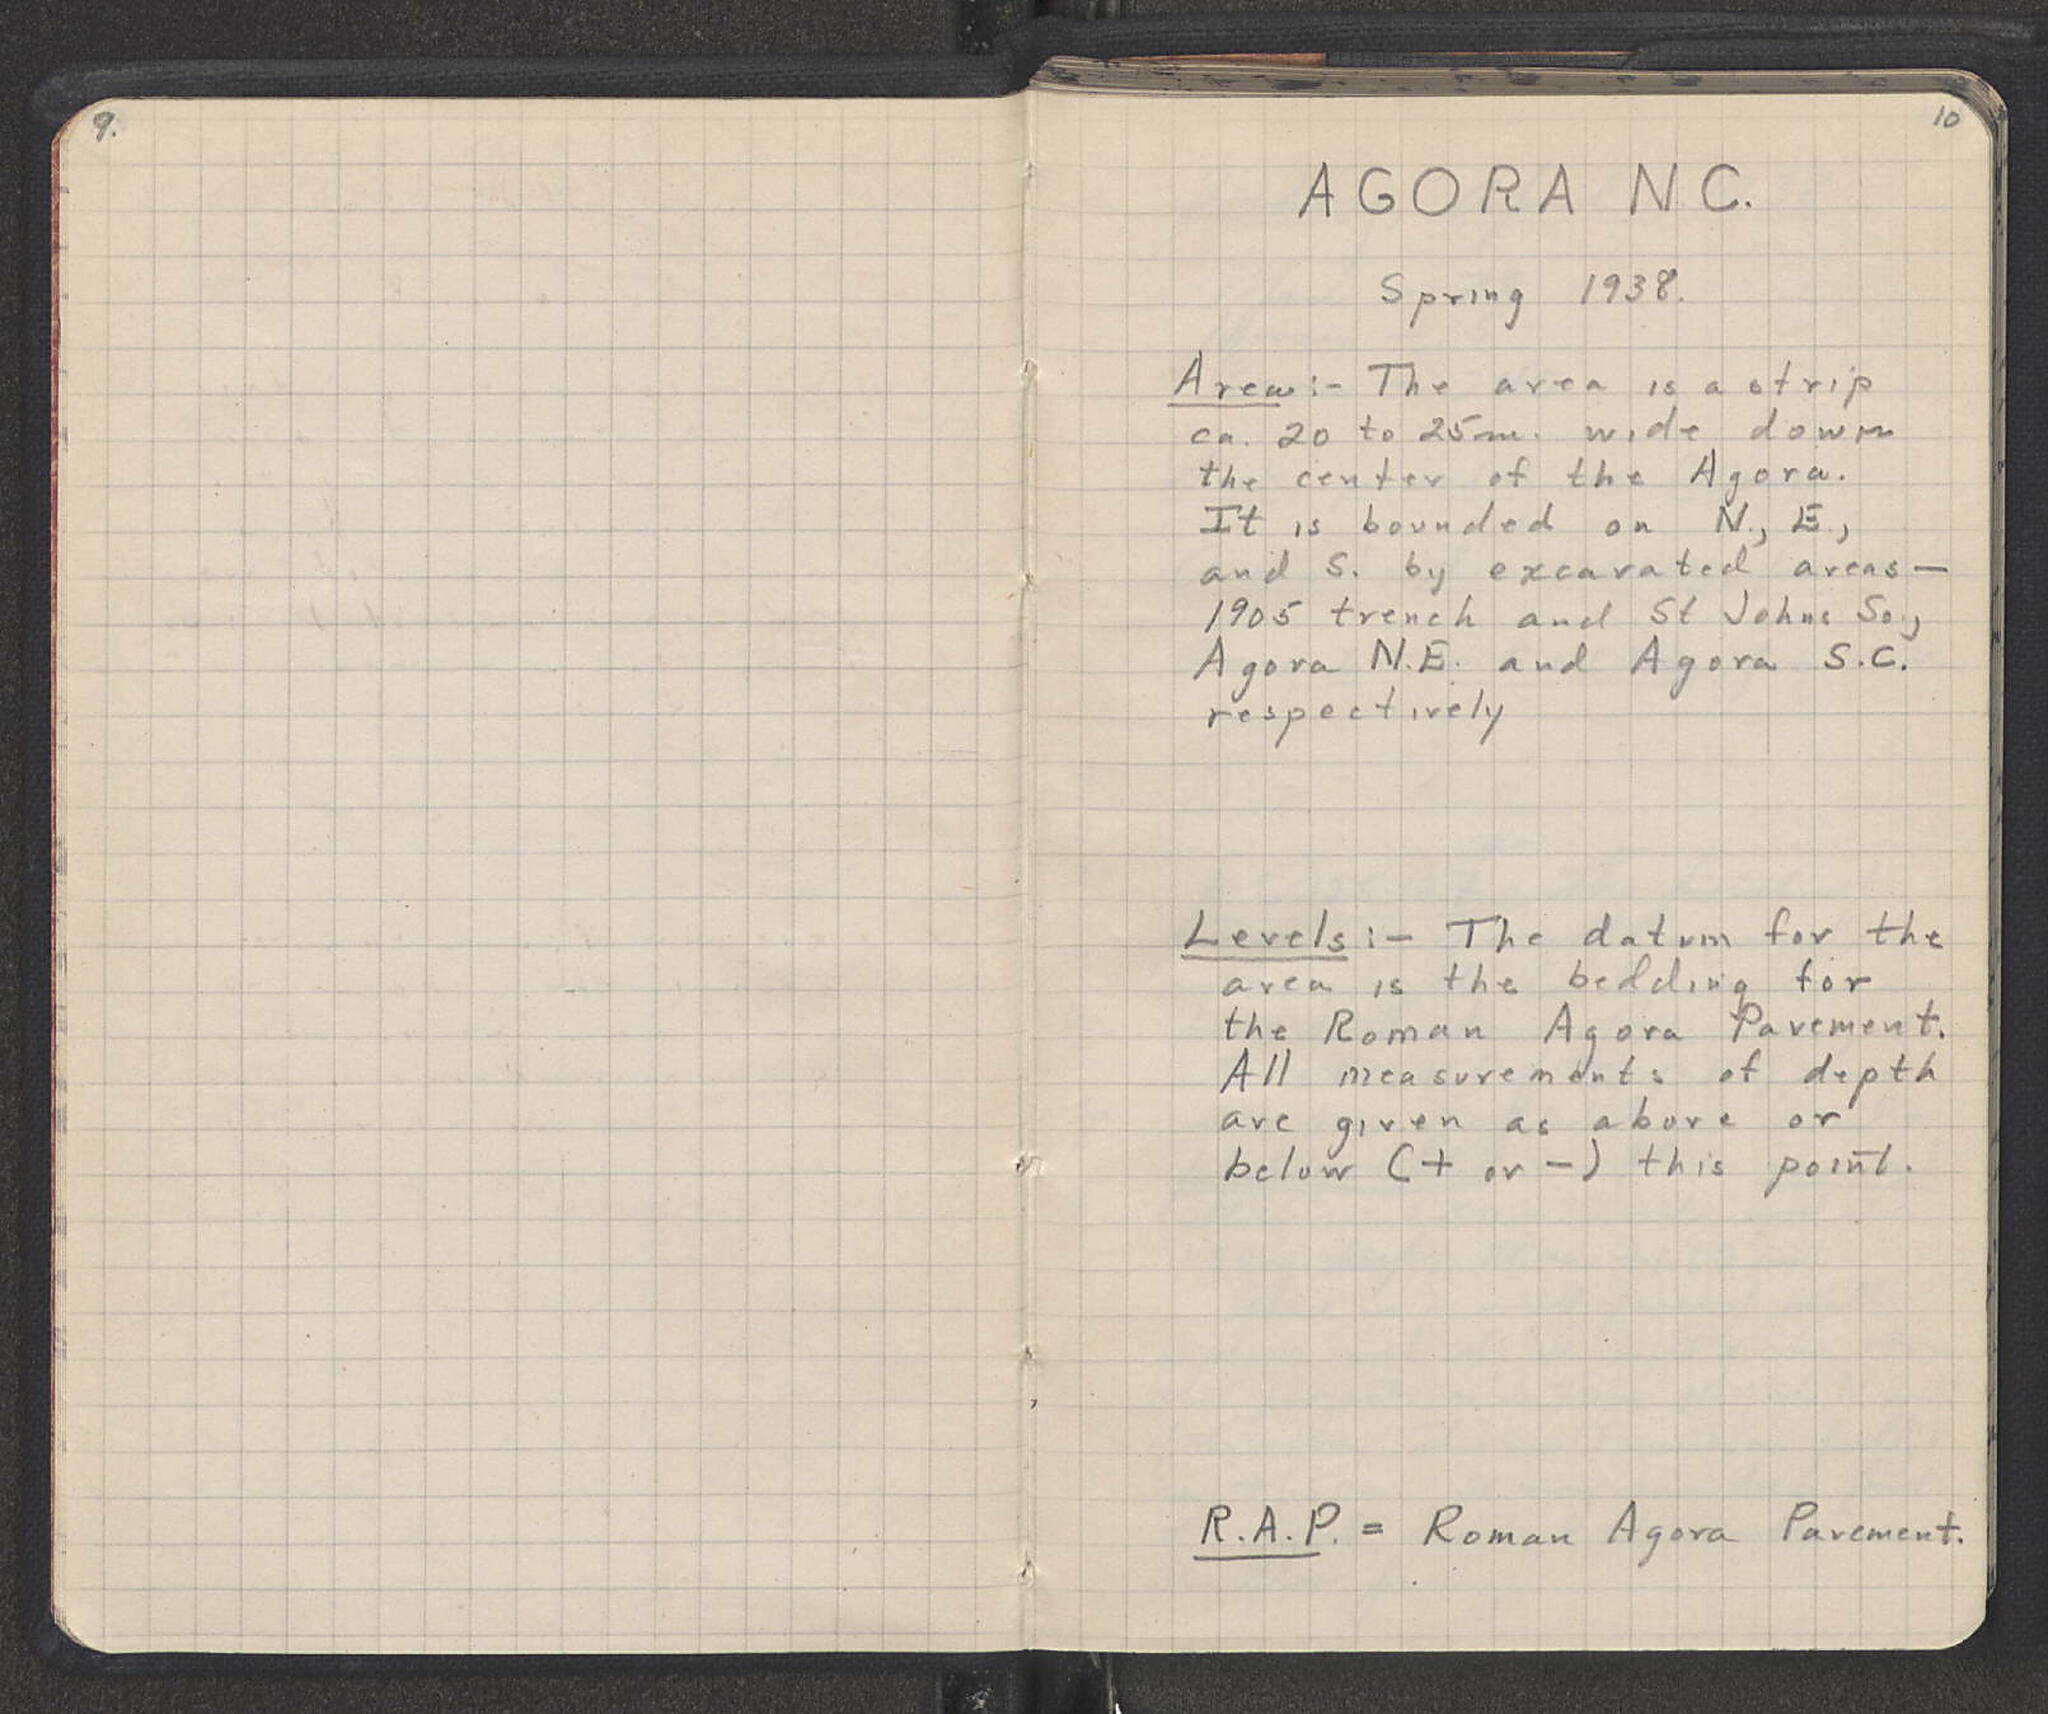 9.
10
AGORA N C.
Spring 1938.
Area:- The area is a strip
ca. 20 to 25m. wide down
the center of the Agora.
It is bounded on N., E.,
and S. by excavated areas—
1905 trench and St Johns So.,
Agora N.E. and Agora S.C.
respectively
Levels:- The datum for the
area is the bedding for
the Roman Agora Pavement.
All measurements of depth
are given as above or
below (+ or -) this point.
R.A.P. = Roman Agora Pavement.